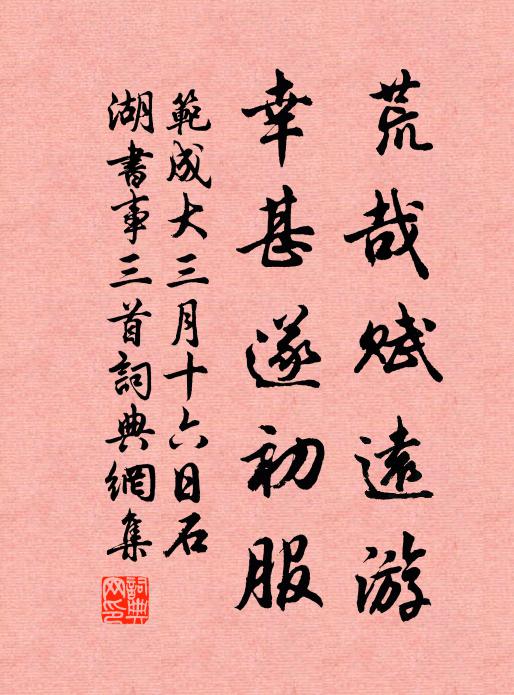 荒哉賦遠游
幸甚遂初服
範成大三月十六日石
湖書事三首詞典網集
詞典
网印